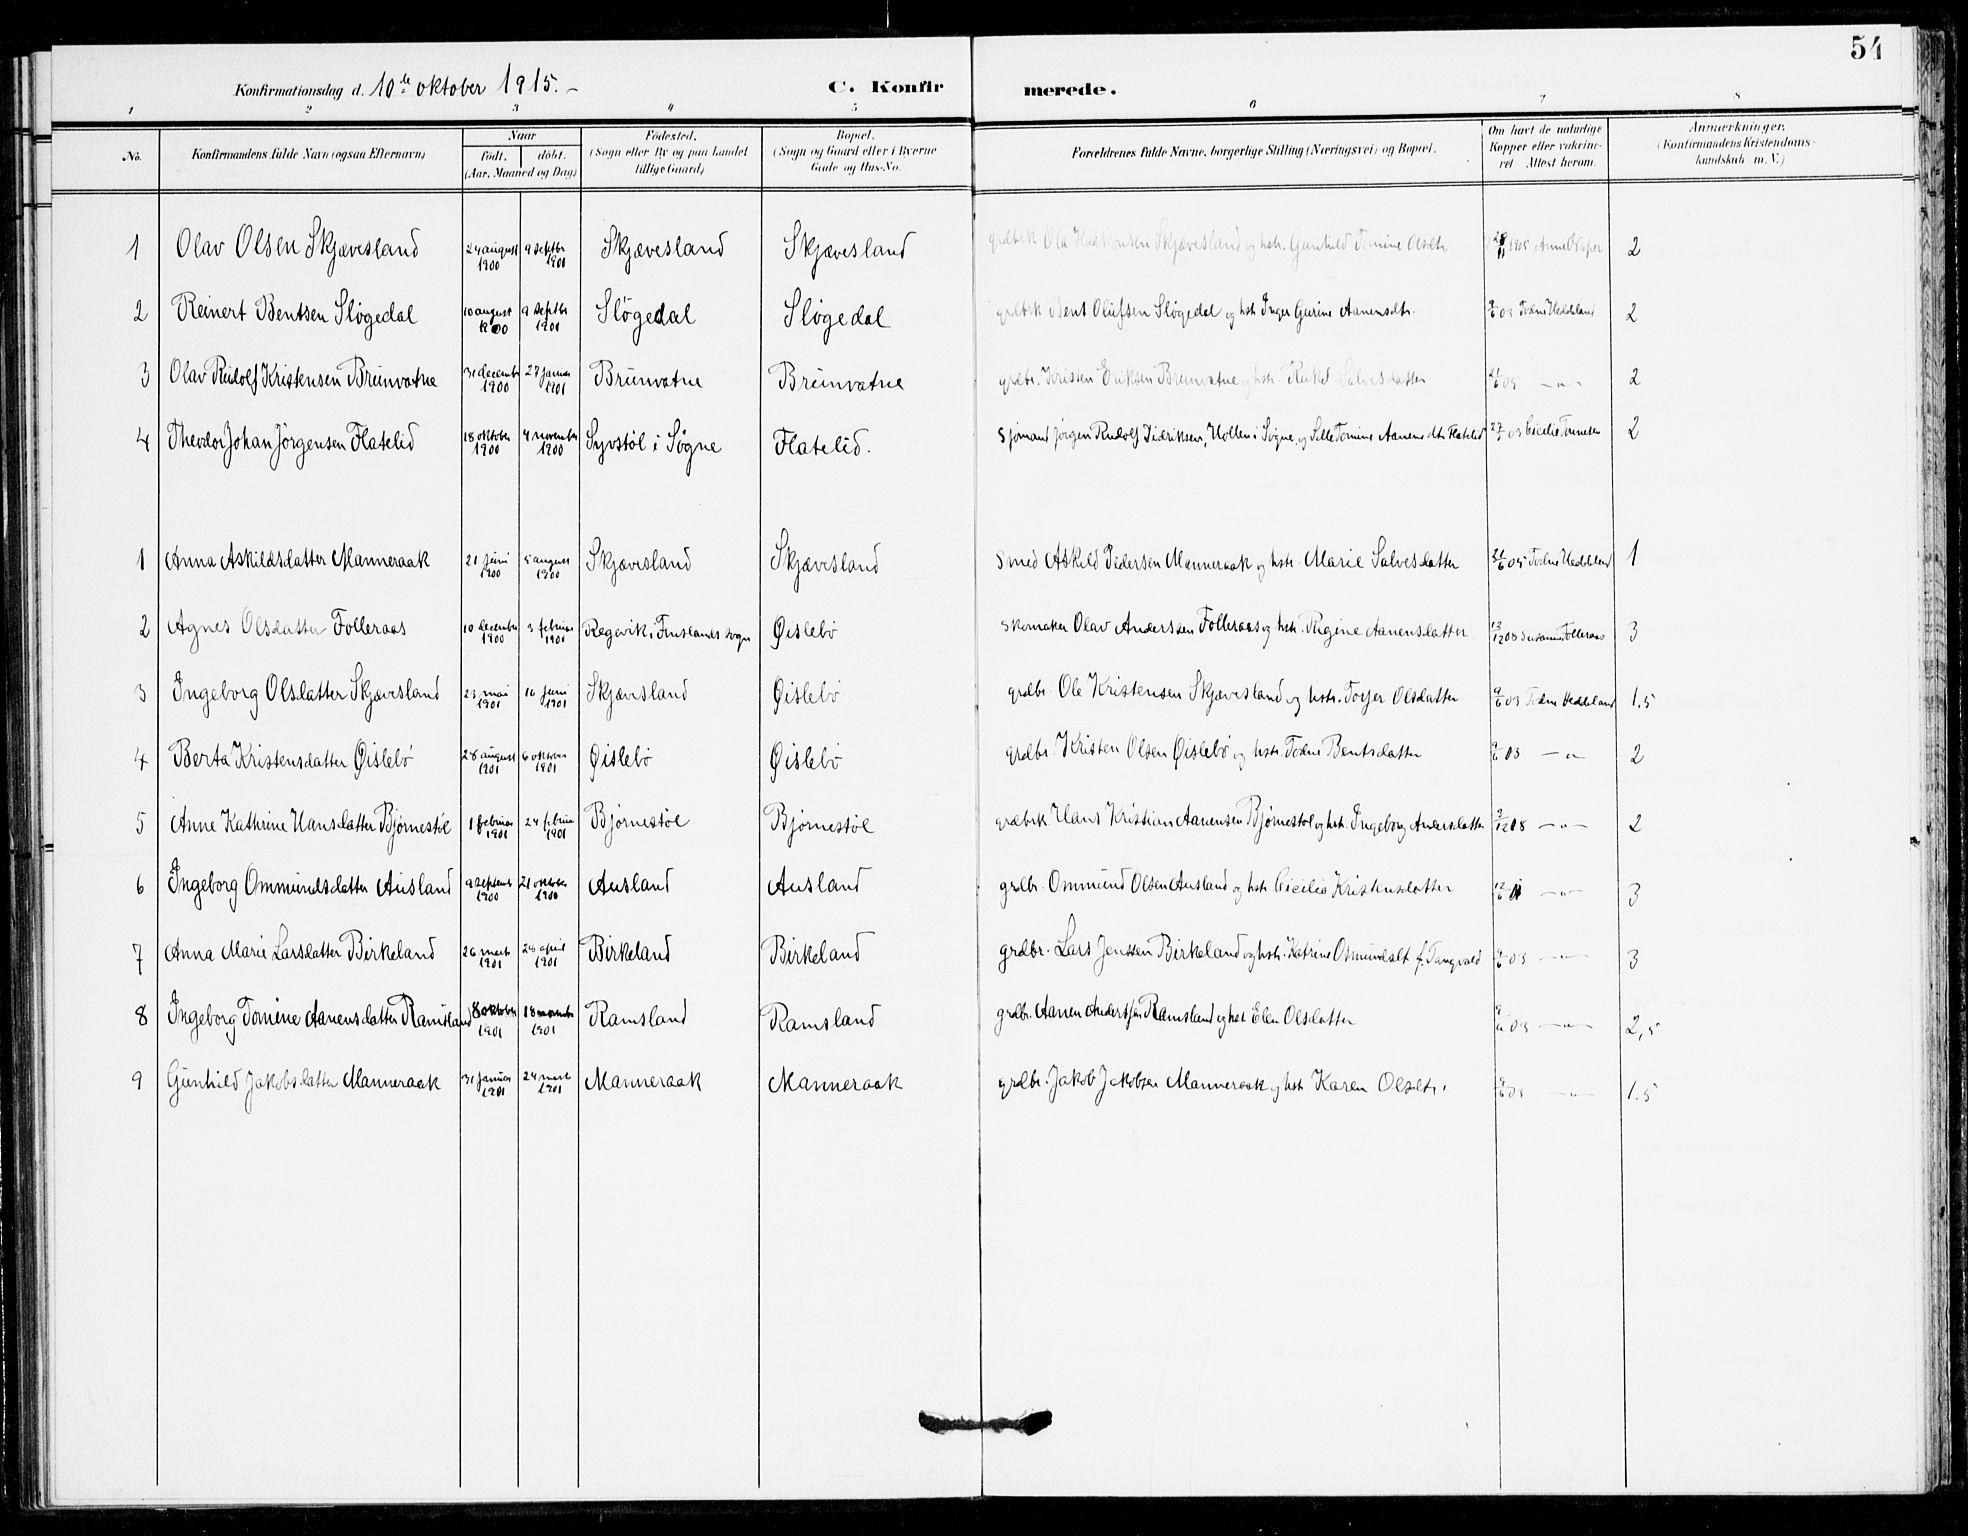 54
Konfirmationsdag d. 10de oktober 1915. C. Konfirmerede.
1 2 3 4 5 6 7 8
No. Konfirmandens fulde Navn (ogsaa Efternavn) Naar født. døbt. (Aar, Maaned og Dag) Fødested. (Sogn eller By og paa Landet tillige Gaard) Bopæl. (Sogn og Gaard eller i Byerne Gade og Hus-No. Forældrenes fulde Navne, borgerlige Stilling (Næringsvei) og Bopæl. Om havt de naturlige Kopper eller vakcineret Attest herom. Anmærkninger. (Konfirmandens Kristendomskundskab m. V.)
1 Olav Olsen Skjævesland 24 august 1900 9 septbr 1900 Skjævesland Skjævesland grdbrk Ola Haakonsen Skjævesland og hstr. Gunhild Tomine Olsdtr 1905 2
2 Reinert Bentsen Sløgedal 10 august 1900 9 septbr 1900 Sløgedal Sløgedal grdbrk Bent Olufsen Sløgedal og hstr Inger Gurine Aanensdtr. 03 Todne Heddeland 2
3 Olav Rudolf Kristensen Brunvatne 31 decembr 1900 27 januar 1901 Brunvatne Brunvatne grdbr. Kristen Eriksen Brunvatne og hstr. Rakel Salvesdatter —"— 2
4 Theodor Johan Jørgensen Flatelid 18 oktober 1900 4 november 1900 Syvstøl i Søgne Flatelid. Sjømand Jørgen Rudolf Didriksen, i Søgne, og Tomine Aanensdtr Flatelid 03 2
1 Anna Askildsdatter Manneraak 21 juni 1900 5 august 1900 Skjævesland Skjævesland Smed Askild Pedersen Manneraak og hstr. Marie Salvesdatter Todne Heddeland 1
2 Agnes Olsdatter Folleraas 10 december 1900 3 februar 1901 Regevik i Finslands sogn Øislebø Skomaker Olav Anderssen Folleraas og hstr. Regine Aanensdatter Susanne Folleraas 3
3 Ingeborg Olsdatter Skjævesland 23 mai 1901 16 juni 1901 Skjævesland Øislebø grdbr. Ole Kristensen Skjævesland og hstr. Torjer Olsdatter 9/6 03 Todne Heddeland 1.5
4 Berta Kristensdatter Øislebø 28 august 1901 6 oktober 1901 Øislebø Øislebø grdbr. Kristen Olsen Øislebø og hstr. Todne Bentsdatter 9/6 03 —"— 2
5 Anne Kathrine Hansdatter Bjørnestøl 1 februar 1901 24 februar 1901 Bjørnestøl Bjørnestøl grdbrk. Hans Kristian Aanensen Bjørnestøl og hstr. Ingeborg Andersdatter —"— 2
6 Ingeborg Ommundsdatter Ausland 9 septembr 1900 21 oktober 1900 Ausland Ausland grdbr. Ommund Olsen Ausland og hstr. Cicilie Kristensdatter —"— 3
7 Anna Marie Larsdatter Birkeland 26 marts 1901 28 april 1901 Birkeland Birkeland grdbr. Lars Jenssen Birkeland og hstr. Katrine Osmundsdt f. Tangvald 9/6 03 —"— 3
8 Ingeborg Tomine Aanensdatter Ramsland 8 oktober 1901 18 november 1901 Ramsland Ramsland grdbr. Aanen Anderssen Ramsland og hstr Elen Olsdatter 9/6 03 —"— 2,5
9 Gunhild Jakobsdatter Manneraak 31 januar 1901 24 marts 1901 Manneraak Manneraak grdbr. Jakob Jakobsen Manneraak og hstr Karen Olsdtr. 9/6 03 —"— 1.5